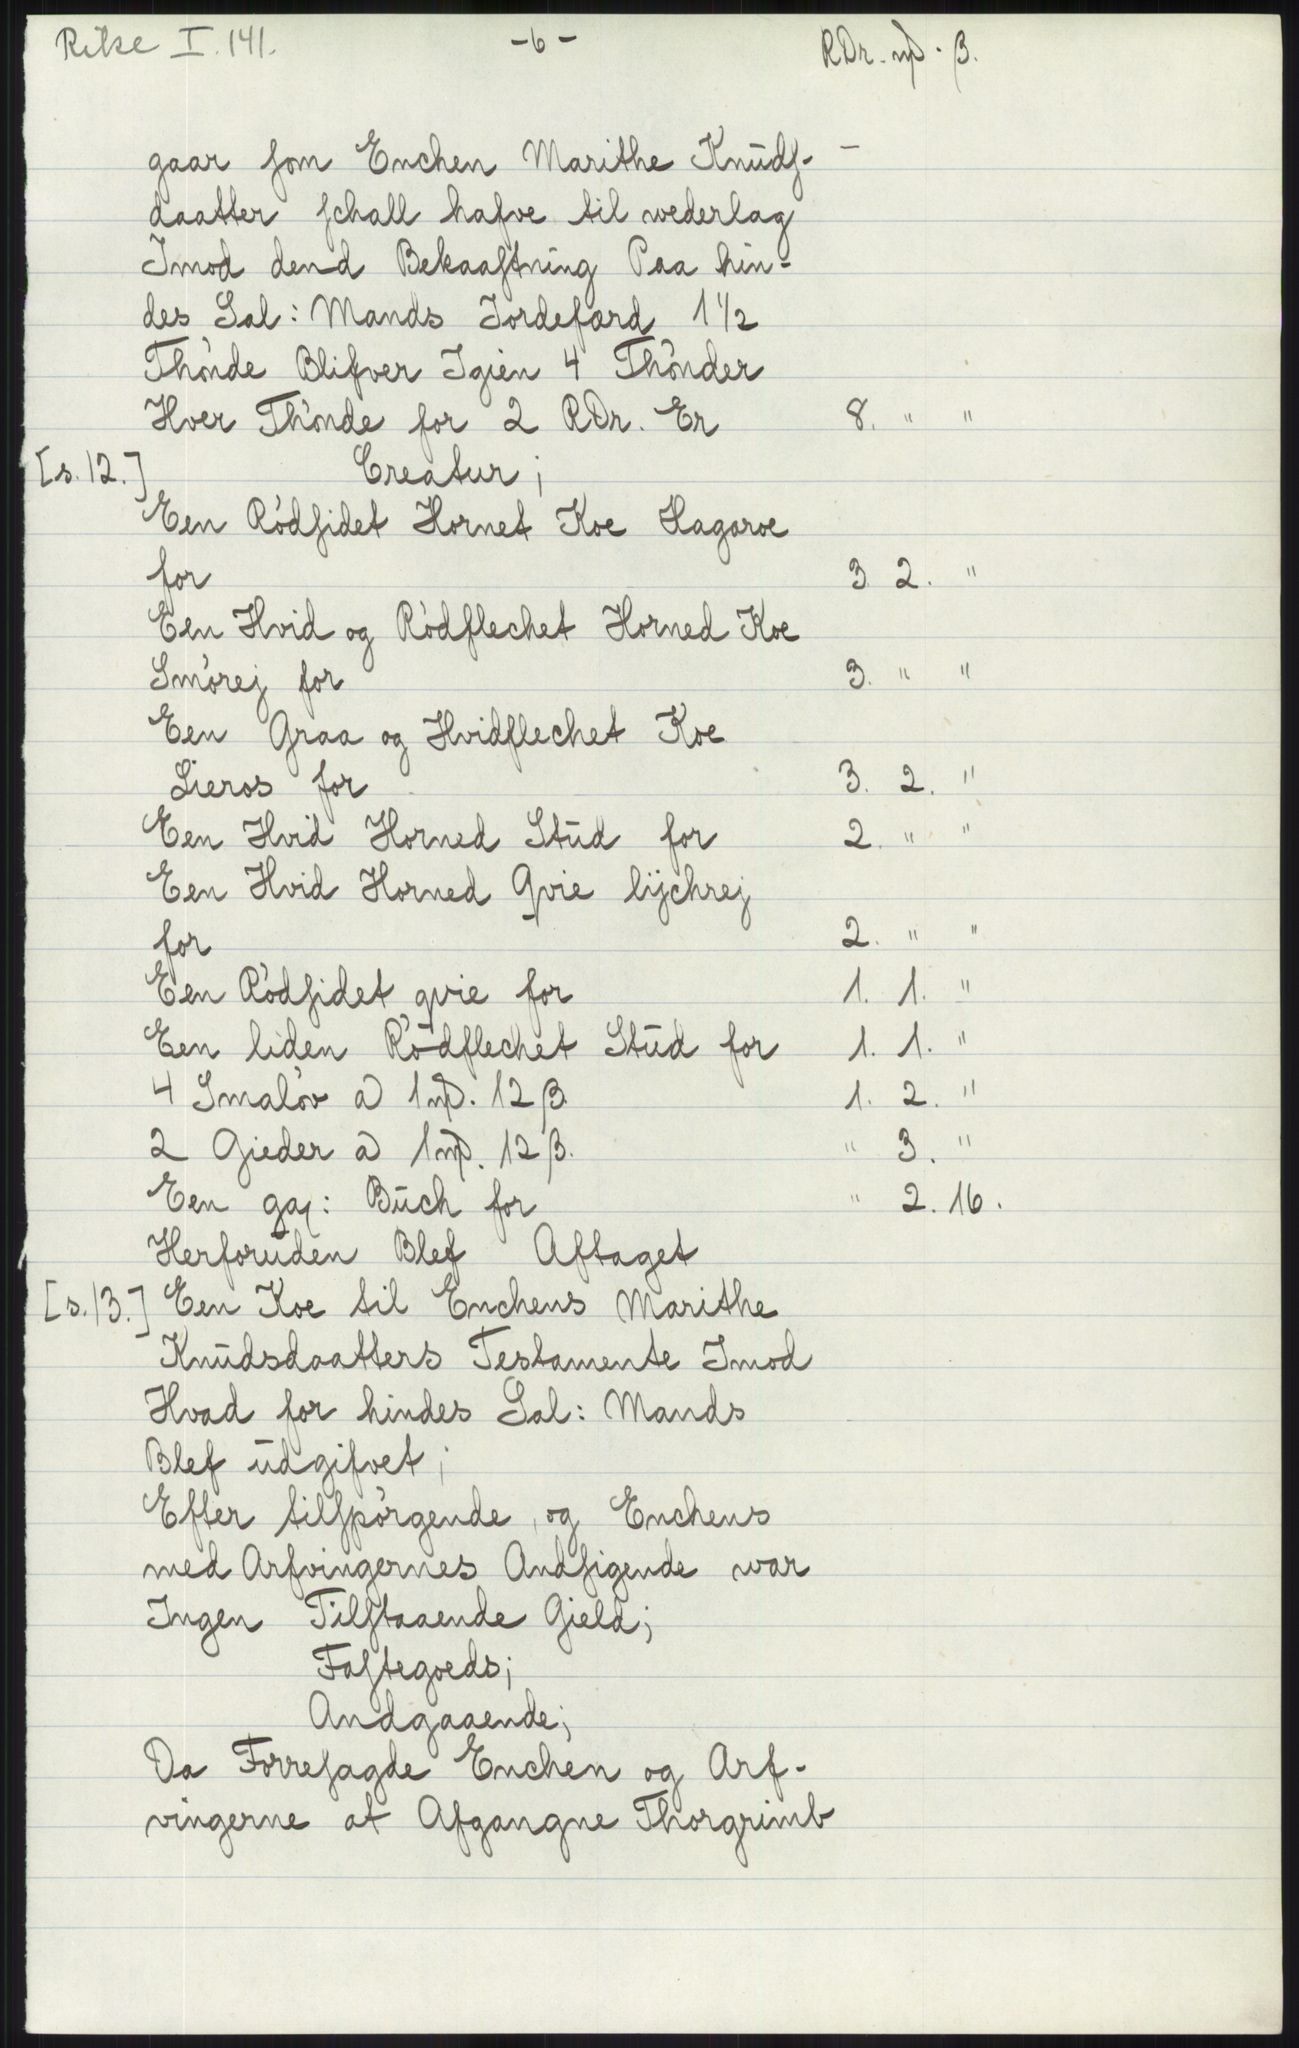 Rike I. 141. -6- RDr. mƿ. β.
gaar som Enchen Marithe Knŭds-
daatter schall hafve til wederlag
Imod dend Bekaastning Paa hin-
des Sal: Mands Jordefærd 1 1/2
Thönde Blifver Igien 4 Thönder
Hver Thönde for 2 RDr. Er 8. " "
[s.12.] Creatur;
Een Rödsidet Hornet Koe Hagaroe
for 3. 2. "
Een Hvid og Rödflechet Horned Koe
Smörej for 3. " "
Een Graa og Hvidflechet Koe
Lieros for 3. 2. "
Een Hvid Horned Stŭd for 2. " "
Een Hvid Horned Qvie lijchrej
for 2. " "
Een Rödsidet qvie for 1. 1. "
Een liden Rödflechet Stŭd for 1. 1. "
4 Smalöv a 1 mƿ. 12 β. 1. 2. "
2 Gieder a 1 mƿ. 12 β. " 3. "
Een Bŭch for " 2. 16.
Herforŭden Blef Aftaget
[s.13.] Een Koe til Enchens Marithe
Knŭdsdaatters Testamente Imod
Hvad for hindes Sal: Mands
Blef ŭdgifvet;
Efter tilspörgende, og Enchens
med Arfvingernes Andsigende war
Ingen Tilstaaende Gield;
Fastegoeds;
Andgaaende;
Da Forresagde Enchen og Arf-
vingerne at Afgangne Thorgrimb